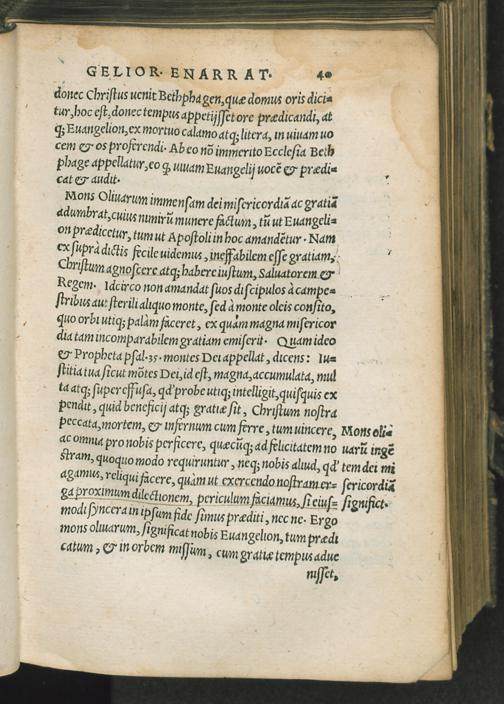 GELIOR· ENARRAT· 40
donec Christus uenit Bethphagen, quæ domus oris dici=
tur, hoc est, donec tempus appetijsset ore prædicandi, at
q; Euangelion, ex mortuo calamo atq; litera, in uiuam uo
cem & os proferendi. Ab eo nō immerito Ecclesia Beth
phage appellatur, eo q, uiuam Euangelij uocē & prædi=
cat & audit.
Mons Oliuarum immensam dei misericordiā ac gratiā
adumbrat, cuius nimirū munere factum, tū ut Euangeli=
on prædicetur, tum ut Apostoli in hoc amandētur · Nam
ex suprà dictis fecile uidemus, ineffabilem esse gratiam,
Christum agnoscere atq; habere iustum, Saluatorem &
Regem· Idcirco non amandat suos discipulos à campe=
stribus aut sterili aliquo monte, sed à monte oleis consito,
quo orbi utiq; palàm faceret, ex quàm magna misericor
dia tam incomparabilem gratiam emiserit· Quam ideo
& Propheta psal·35· montes Dei appellat, dicens: Iu=
stitia tua sicut mōtes Dei, id est, magna, accumulata, mul
ta atq; supereffusa, qd' probe utiq; intelligit, quisquis ex
pendit, quid beneficij atq; gratiæ sit, Christum nostra
peccata, mortem, & infernum cum ferre, tum uincere,
ac omnia pro nobis perficere, quæcūq; ad felicitatem no
stram, quoquo modo requiruntur, neq; nobis aliud, qd'
agamus, reliqui facere, quàm ut exercendo nostram er=
ga proximum dilectionem, periculum faciamus, si eius=
modi syncera in ipsum fide simus præditi, nec ne· Ergo
mons oliuarum, significat nobis Euangelion, tum prædi
catum, & in orbem missum, cum gratiæ tempus adue
nisset,
Mons oliā
uarū ingē
tem dei mi
sericordiā
significt·